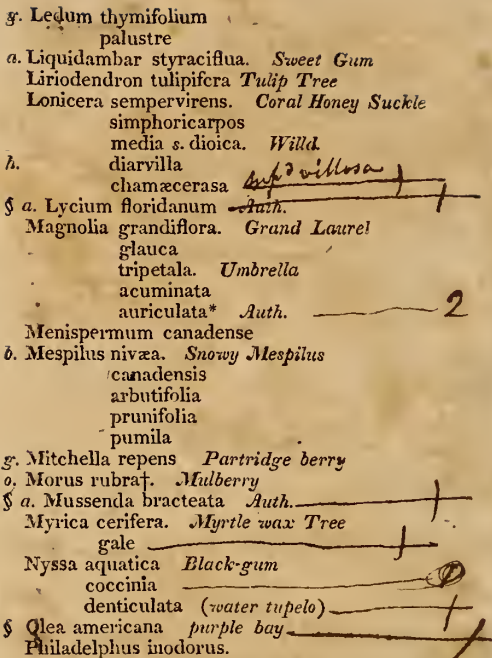 g. Ledum thymifolium
palustre
a. Liquidambar styraciflua. Sweet Gum
Liriodendron tulipifera Tulip Tree
Lonicera sempervirens. Coral Honey Suckle
simphoricarpos
media s. dioica. Willd.
h. diarvilla
chamæcerasa supd villosa
§ a. Lycium floridanum Auth.
Magnolia grandiflora. Grand Laurel
glauca
tripetala. Umbrella
acuminata
auriculata* Auth. 2
Menispermum canadense
b. Mespilus nivæa. Snowy Mespilus
canadensis
arbutifolia
prunifolia
pumila
g. Mitchella repens Partridge berry
o. Morus rubra†. Mulberry
§ a. Mussenda bracteata Auth.
Myrica cerifera. Myrtle wax Tree
gale
Nyssa aquatica Black-gum
coccinia
denticulata (water tupelo)
§ Olea americana purple bay
Philadelphus inodorus.